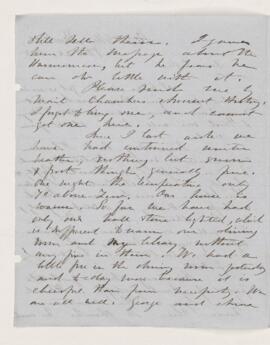 still
him the message about the
but he fears he
can do little with it.
Please send me by
mail Chambers Ancient History,
I forgot to bring one, and cannot
get one here.
Since I last wrote we
have had continued winter
weather, nothing but snow
& frost though generally fine.
One night the temperature only
10 above Zero. Our house is
warm. So far we have had
only our hall stove lighted, which
is sufficient to warm our dining
room and my library without
any fire in them. We had a
little fire in the dining room yesterday
and to-day more because it is
cheerful than from necessity. We
are all well. George and